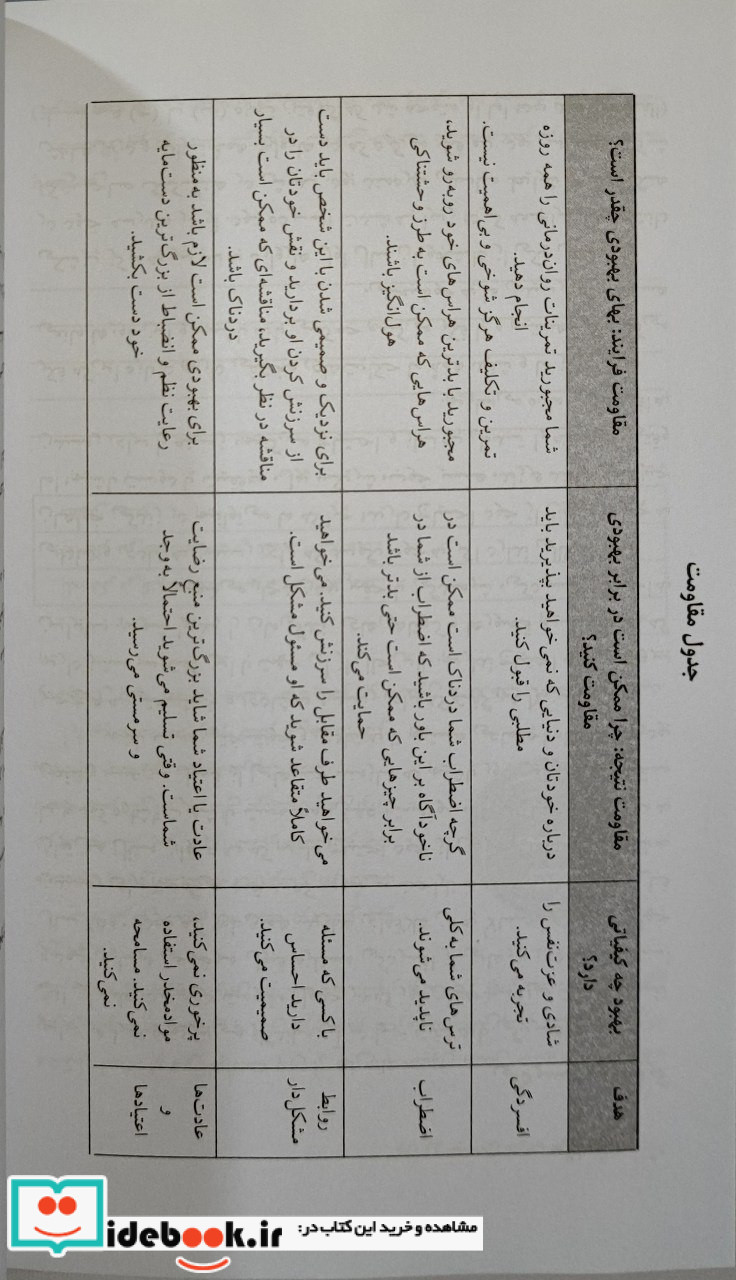 جدول مقاومت
هدف
بهبود چه کیفیاتی
دارد؟
مقاومت نتیجه: چرا ممکن است در برابر بهبودی
مقاومت کنید؟
مقاومت فرایند: بهای بهبودی چقدر است؟
افسردگی
شادی و عزت‌نفس را
تجربه می‌کنید.
درباره خودتان و دنیایی که نمی خواهید بپذیرید باید
مطلبی را قبول کنید.
شما مجبورید تمرینات روان‌درمانی را همه روزه
انجام دهید.
تمرین و تکلیف هرگز شوخی و بی‌اهمیت نیست.
اضطراب
ترس‌های شما به‌کلی
ناپدید می‌شوند.
گرچه اضطراب شما دردناک است ممکن است در
ناخودآگاه بر این باور باشید که اضطراب از شما در
برابر چیزهایی که ممکن است حتی بدتر باشد
حمایت می‌کند.
مجبورید با بدترین هراس‌های خود روبه‌رو شوید،
هراس‌هایی که ممکن است به طرز وحشتناکی
هول‌انگیز باشند.
روابط
مشکل‌دار
با کسی که مسئله
دارید احساس
صمیمیت می‌کنید.
می‌خواهید طرف مقابل را سرزنش کنید. می‌خواهید
کاملاً متقاعد شوید که او مسئول مشکل است.
برای نزدیک و صمیمی شدن با این شخص باید دست
از سرزنش کردن او بردارید و نقش خودتان را در
مناقشه در نظر بگیرید، مناقشه‌ای که ممکن است بسیار
دردناک باشد.
عادت‌ها
و
اعتیادها
پرخوری نمی‌کنید،
موادمخدر استفاده
نمی‌کنید. مسامحه
نمی‌کنید.
عادت یا اعتیاد شما شاید بزرگ‌ترین منبع رضایت
شماست. وقتی تسلیم می‌شوید احتمالاً به وجد
و سرمستی می‌رسید.
برای بهبودی ممکن است لازم باشد به‌منظور
رعایت نظم و انضباط از بزرگ‌ترین دست‌مایه
خود دست بکشید.
مشاهده و خرید این کتاب در:
idebook.ir